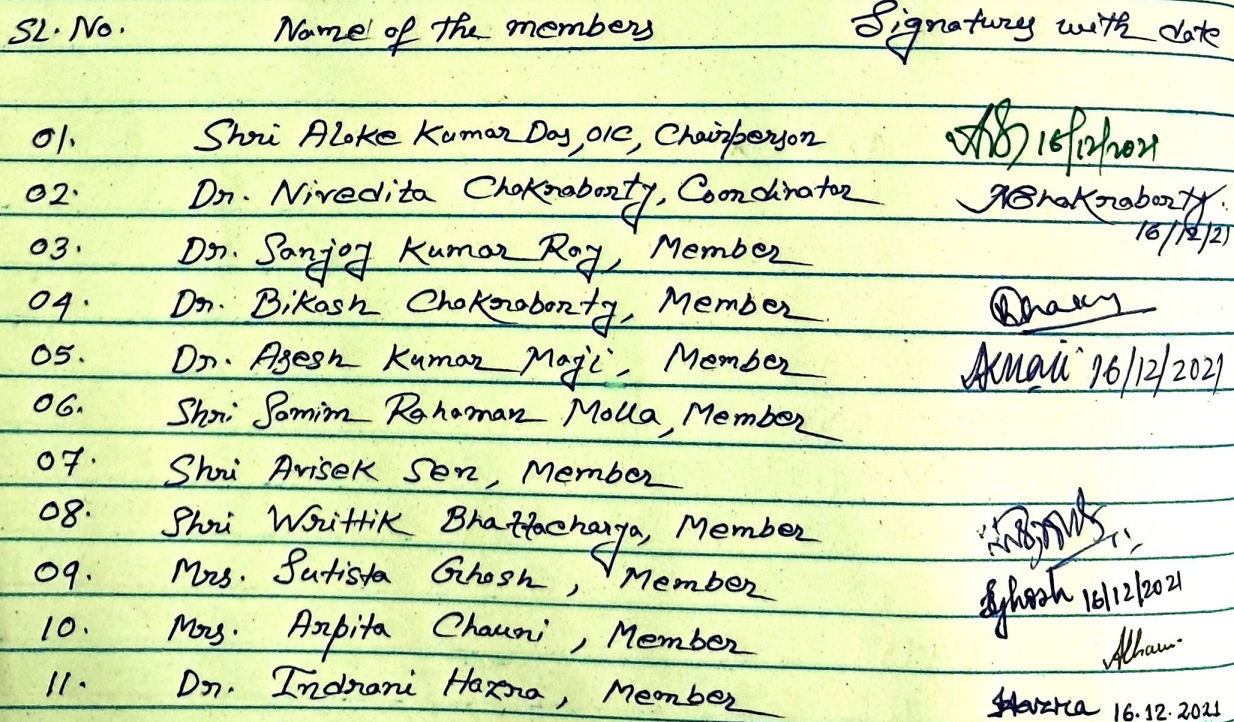 SL. No. Name of the members Signatures with date
01. Shri Aloke Kumar Das, OIC, Chairperson 16/12/2021
02. Dr. Nivedita Chakraborty, Coordinator NChakraborty.
16/12/21
03. Dr. Sanjoy Kumar Roy, Member
04. Dr. Bikash Chakraborty, Member
05. Dr. Ajesh Kumar Maji, Member AKMaji 16/12/2021
06. Shri Samim Rahaman Molla, Member
07. Shri Avisek Sen, Member
08. Shri Writtik Bhattacharya, Member
09. Mrs. Sutista Ghosh, Member SGhosh 16/12/2021
10. Mrs. Arpita Chauni, Member
11. Dr. Indrani Hazra, Member Hazra 16.12.2021